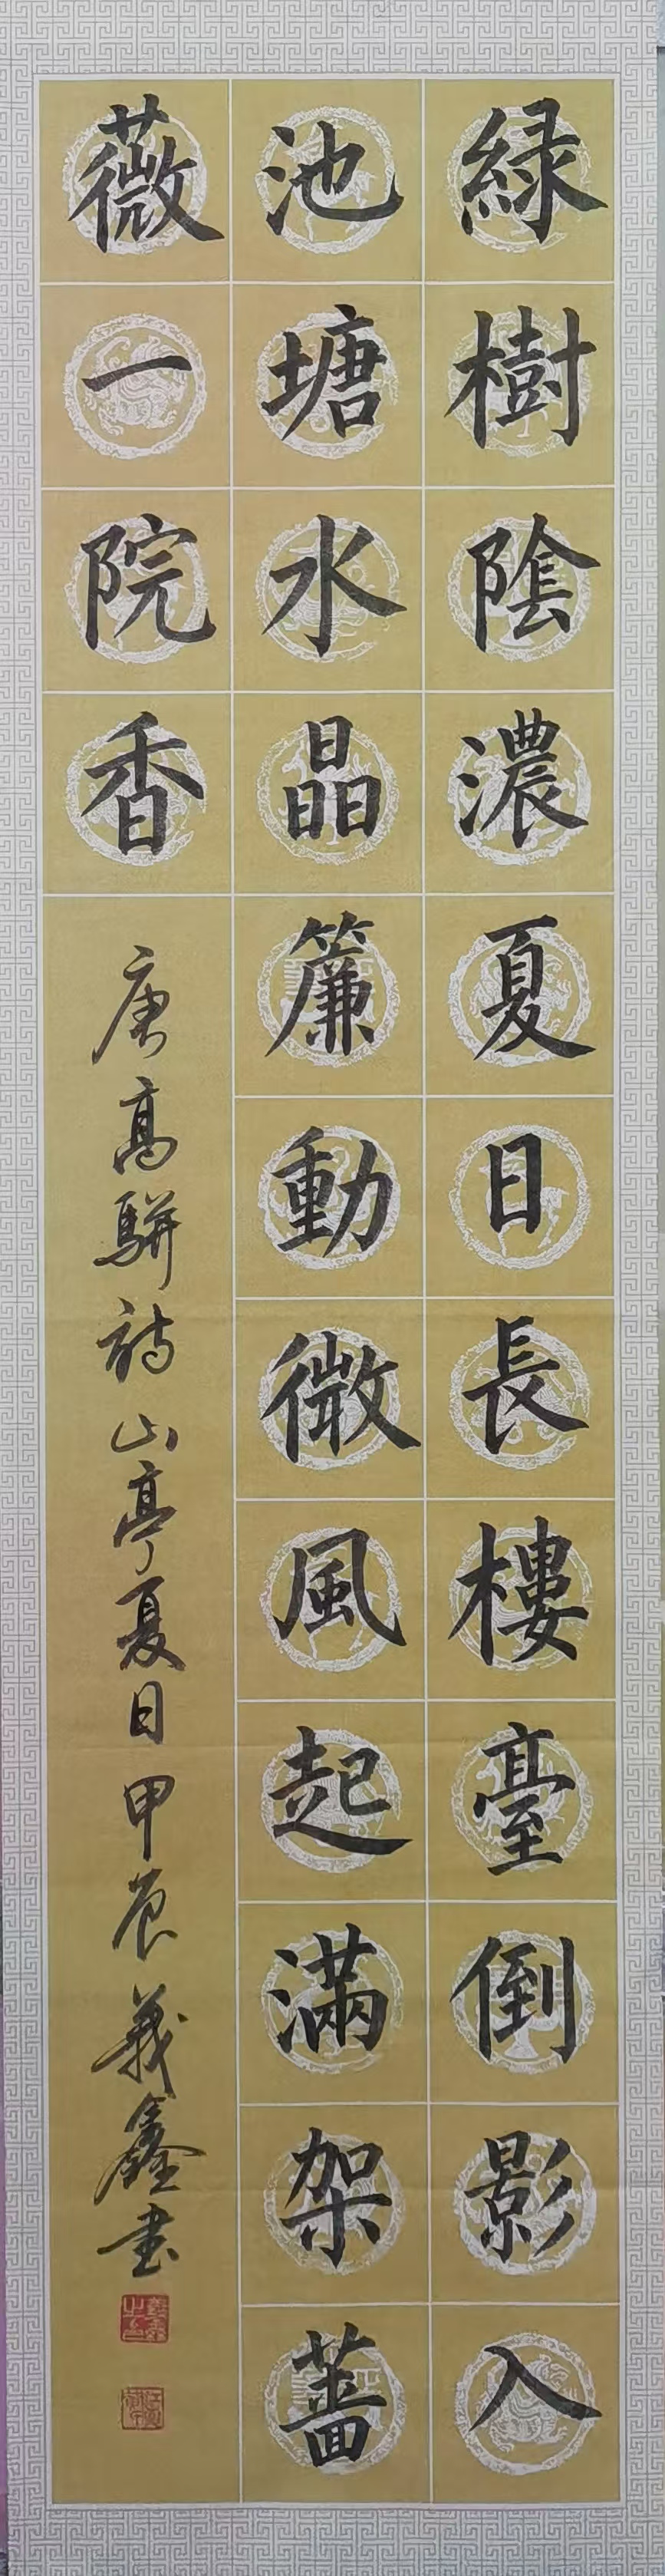 緑樹陰濃夏日長樓臺倒影入
池塘水晶簾動微風起滿架薔
薇一院香
唐高駢詩山亭夏日甲辰義鑫书